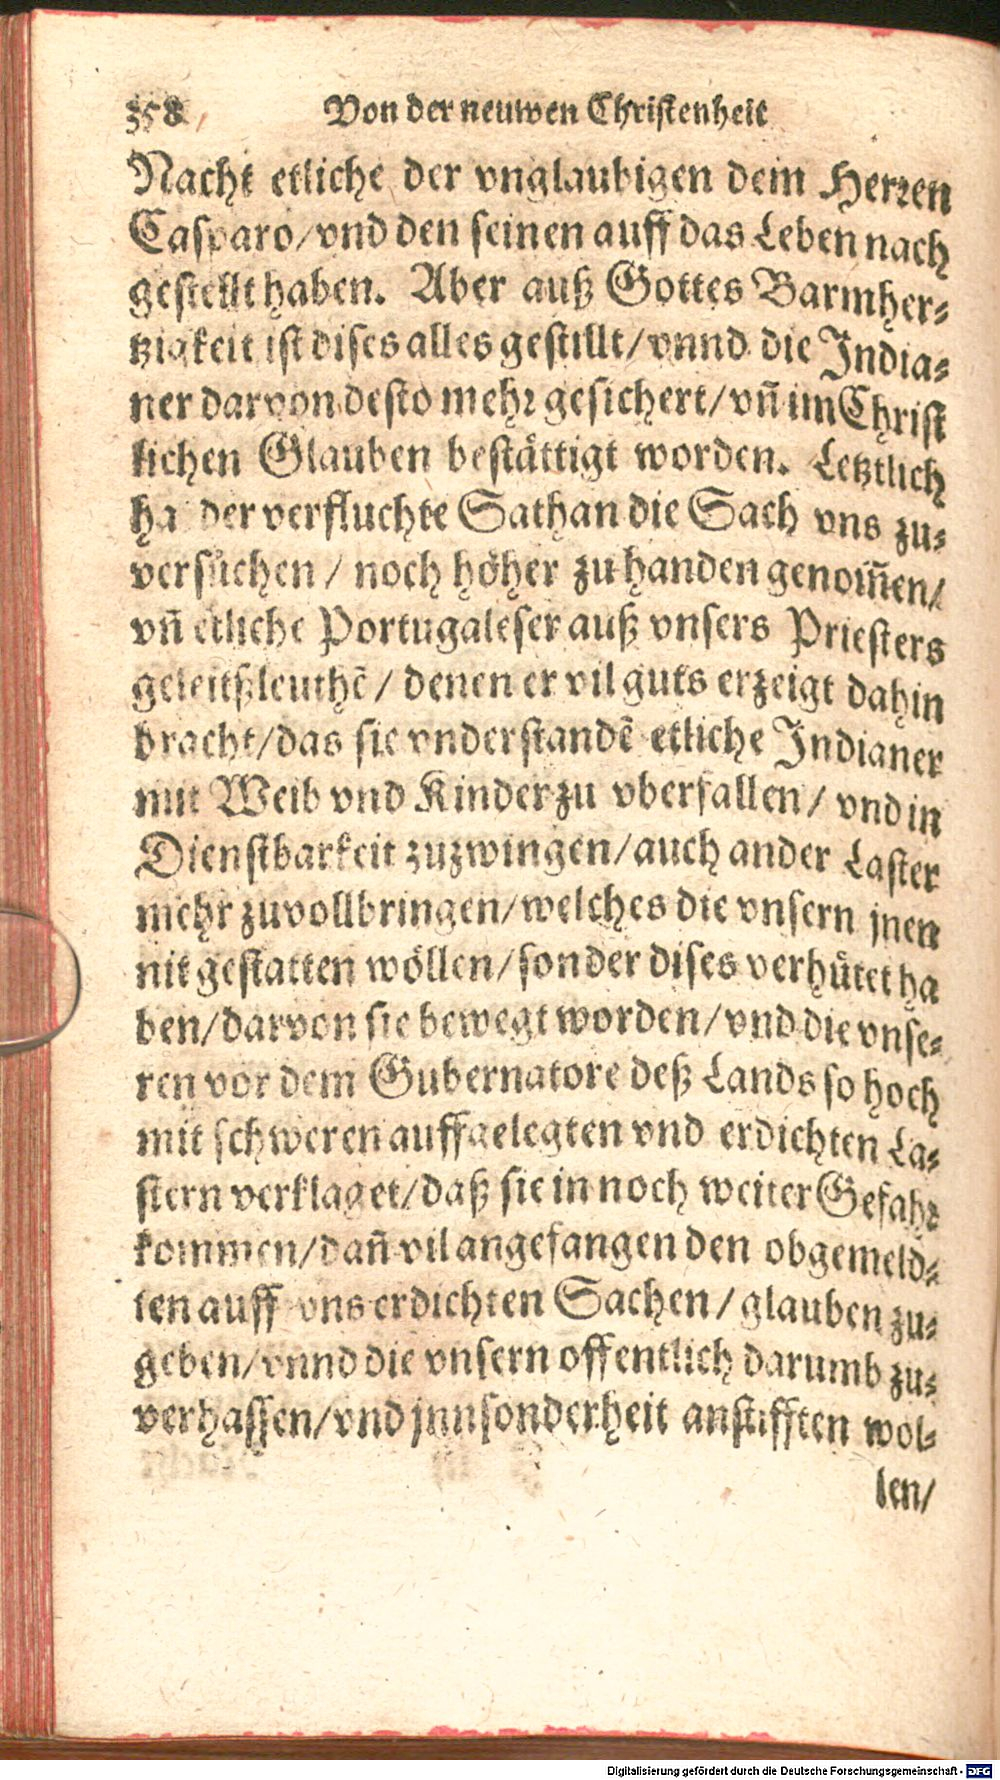 358 Von der neuwen Christenheit
Nacht etliche der vnglaubigen dem Herꝛen
Casparo/vnd den seinen auff das Leben nach
gestellt haben. Aber auß Gottes Barmher⸗
tzigkeit ist dises alles gestillt/vnnd die India⸗
ner darvon desto mehꝛ gesichert/vñ im Christ
lichen Glauben bestättigt worden. Letztlich
ha der verfluchte Sathan die Sach vns zu⸗
versůchen / noch höher zu handen genom̃en/
vñ etliche Portugaleser auß vnsers Priesters
geleitßleuthẽ / denen er vil guts erzeigt dahin
bracht/das sie vnderstandẽ etliche Indianer
mit Weib vnd Kinder zu vberfallen/ vnd in
Dienstbarkeit zuzwingen/auch ander Laster
mehr zuvollbringen/welches die vnsern jnen
nit gestatten wöllen/sonder dises verhůtet ha
ben/darvon sie bewegt worden/vnd die vnse⸗
ren vor dem Gubernatore deß Lands so hoch
mit schweren auffgelegten vnd erdichten La⸗
stern verklaget/daß sie in noch weiter Gefahꝛ
kommen/dañ vil angefangen den obgemeld⸗
ten auff vns erdichten Sachen / glauben zu⸗
geben/vnnd die vnsern offentlich darumb zu⸗
verhassen/vnd jnnsonderheit anstifften wol⸗
len/
Digitalisierung gefördert durch die Deutsche Forschungsgemeinschaft - DFG